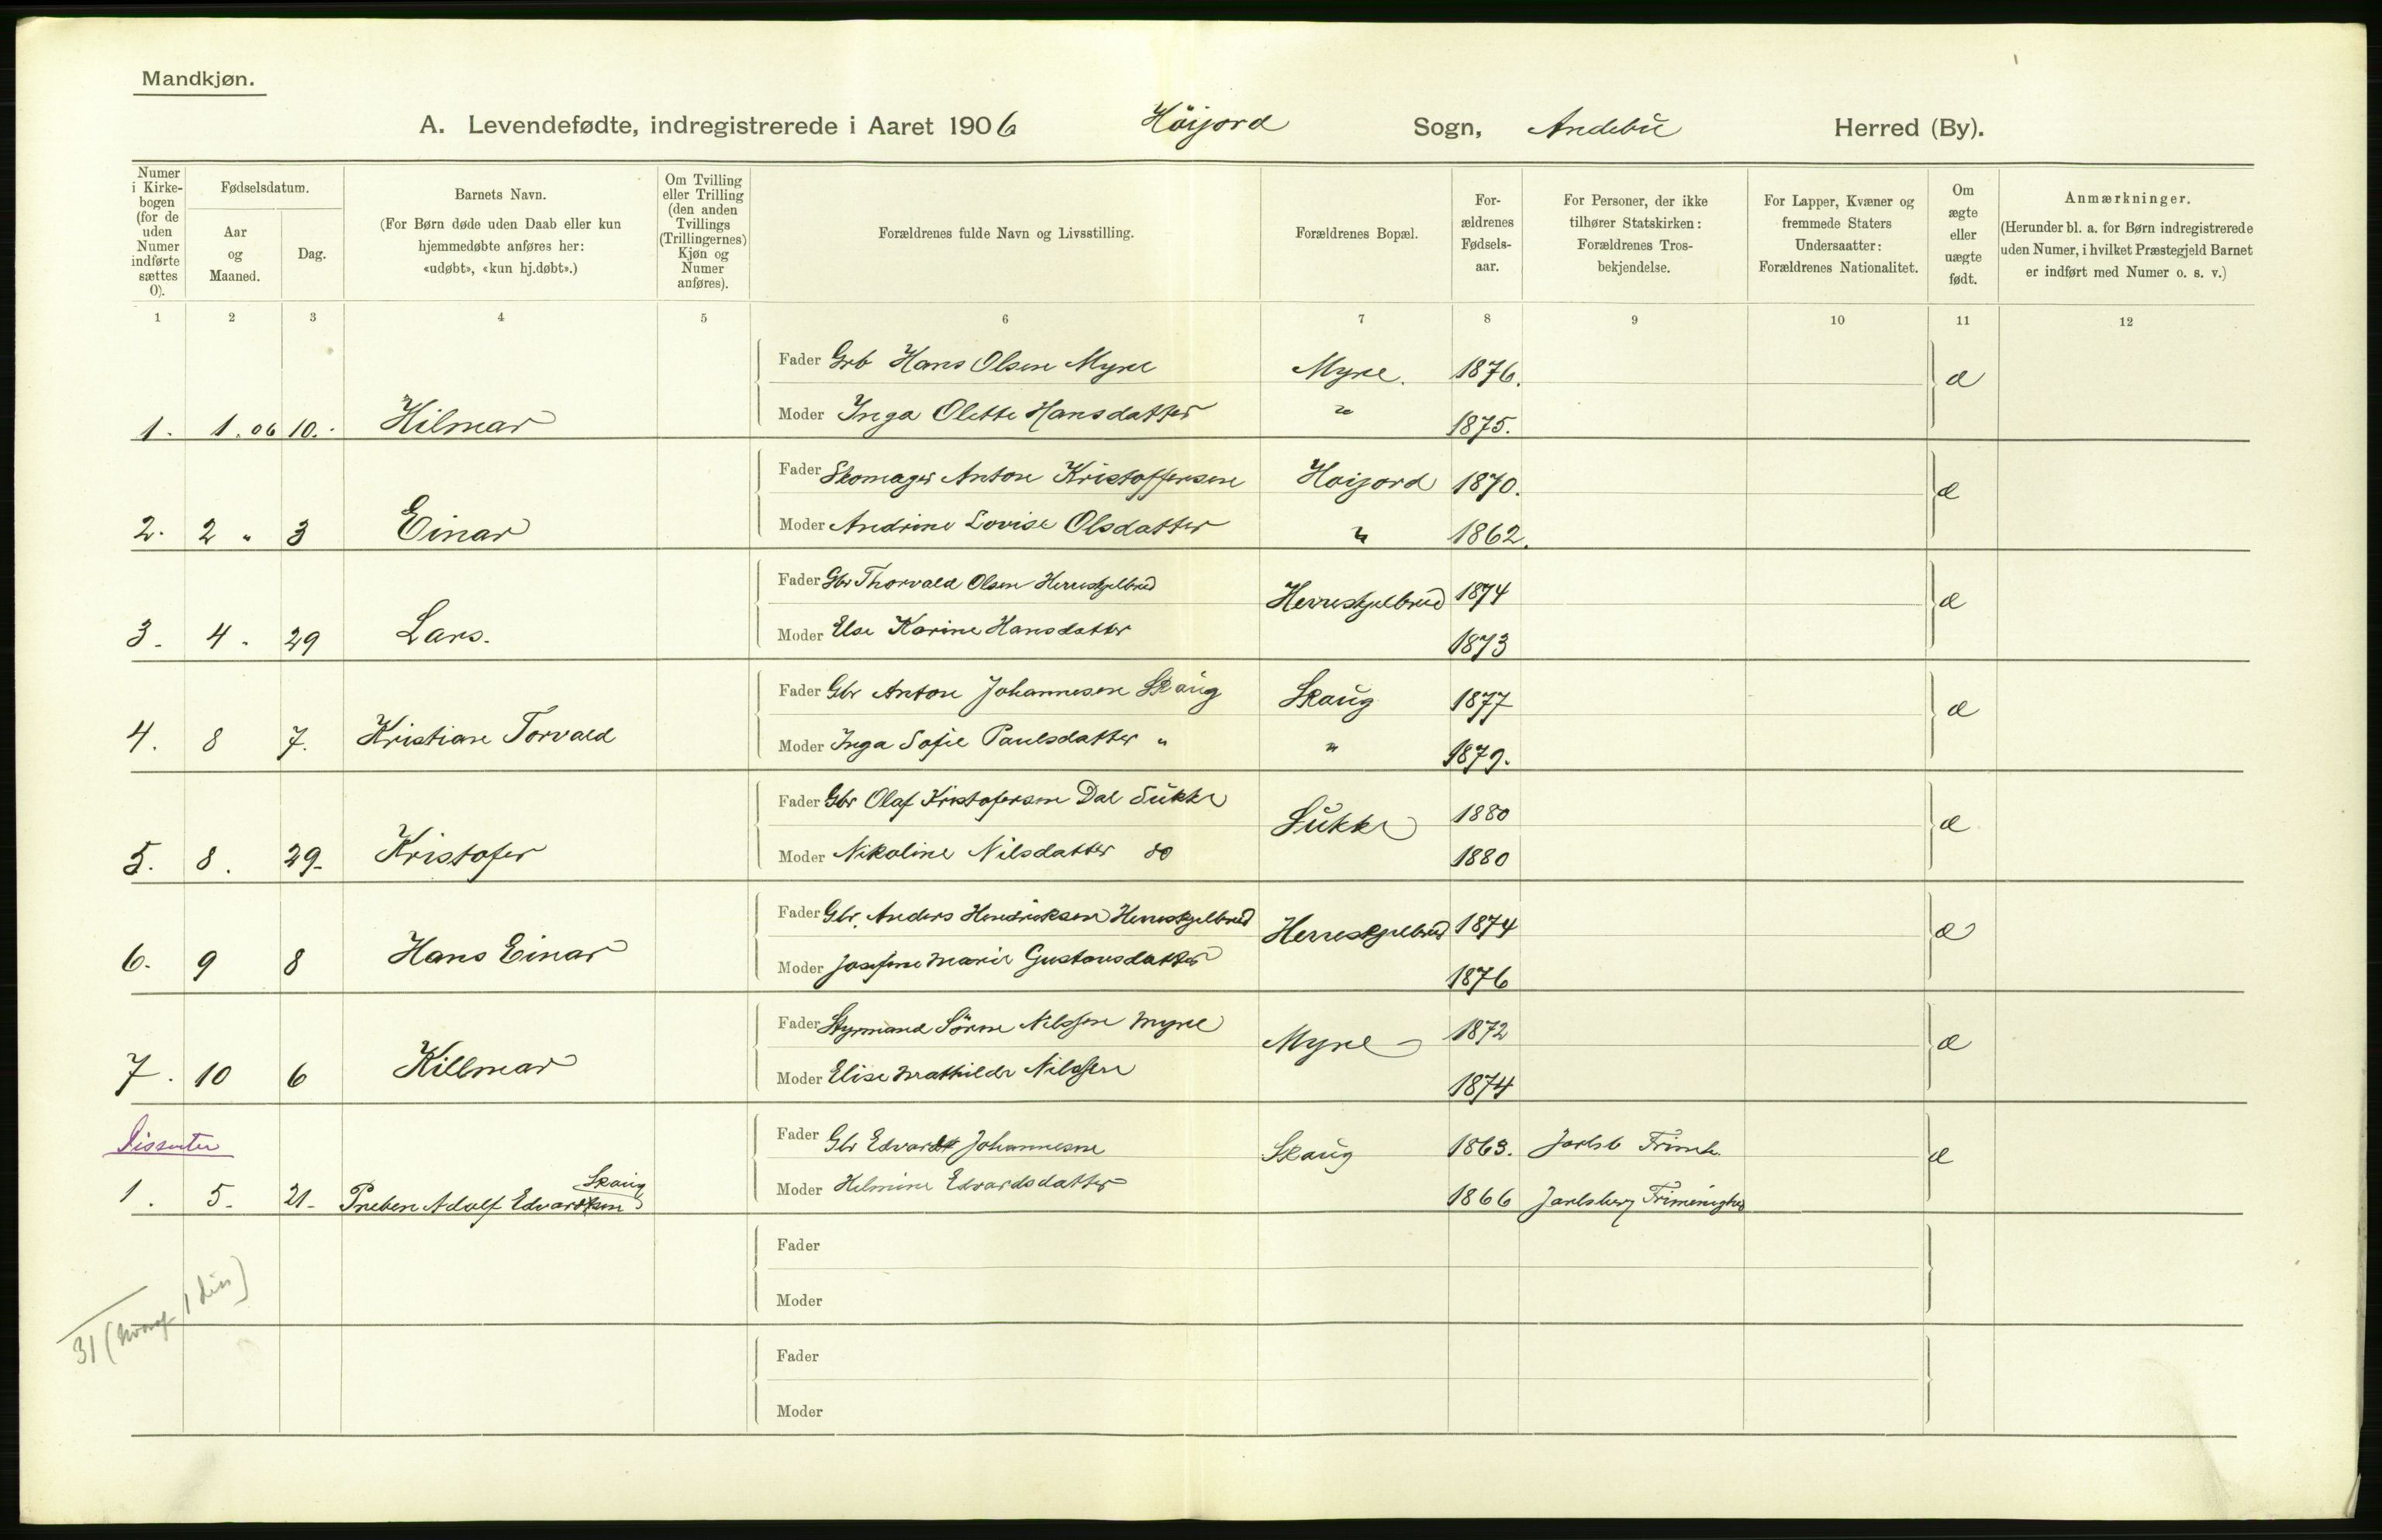 Mandkjøn.
A. Levendefødte, indregistrerede i Aaret 1906 Höijord Sogn, Andebu Herred (By).
Numer i Kirkebogen (for de uden Numer indførte sættes 0).
Fødselsdatum.
Aar og Maaned.
Dag.
Barnets Navn.
(For Børn døde uden Daab eller kun hjemmedøbte anføres her: «udøbt», «kun hj.døbt».)
Om Tvilling eller Trilling (den anden Tvillings (Trillingernes) Kjøn og Numer anføres).
Forældrenes fulde Navn og Livsstilling.
Forældrenes Bopæl.
Forældrenes Fødselsaar.
For Personer, der ikke tilhører Statskirken: Forældrenes Trosbekjendelse.
For Lapper, Kvæner og fremmede Staters Undersaatter: Forældrenes Nationalitet.
Om ægte eller uægte født.
Anmærkninger.
(Herunder bl. a. for Børn indregistrerede uden Numer, i hvilket Præstegjeld Barnet er indført med Numer o. s. v.)
1 2 3 4 5 6 7 8 9 10 11 12
Fader Grb Hans Olsen Myre Myre. 1876. æ
1. 1. 06 10. Hilmar Moder Inga Olette Hansdatter " 1875.
Fader Skomager Anton Kristoffersen Hoijord 1870. æ
2. 2 " 3 Einar Moder Andrine Lovise Olsdatter " 1862.
Fader Gbr Thorvald Olsen Herreskjelbrud Herreskjelbrud 1874 æ
3. 4. 29 Lars. Moder Else Karine Hansdatter 1873
Fader Gbr Anton Johannesen Skaug Skaug 1877 æ
4. 8 7. Kristian Torvald Moder Inga Sofie Paulsdatter " " 1879.
Fader Gbr Olaf Kristofersen Dal Sukke Sukke 1880 æ
5. 8. 29. Kristofer Moder Nikoline Nilsdatter do 1880
Fader Gbr. Anders Hendriksen Herreskjelbrud Herreskjelbrud 1874 æ
6. 9 8 Hans Einar Moder Josefine Marie Gustavsdatter 1876
Fader Styrmand Sören Nilssen Myre Myre 1872 æ
7. 10 6 Killmar Moder Elise Mathilde Nilssen 1874
Dissenter
Fader Gbr Edvardt Johannesen Skaug 1863. Jarlsb Frimen. æ
1. 5. 21. Preben Adolf Edvardsen Skaug Moder Helmine Edvardsdatter 1866 Jarlsberg Frimenighed
Fader
Moder
31 (hvoraf 1 diss)
Fader
Moder